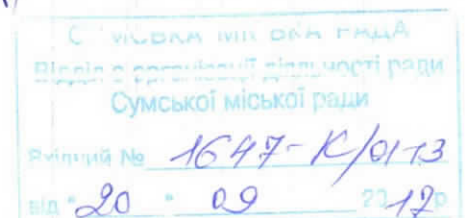 СУМСЬКА МІСЬКА РАДА
Відділ з організації діяльності ради
Сумської міської ради
Вхідний № 1647-К/01-13
від "20" 09 2017р